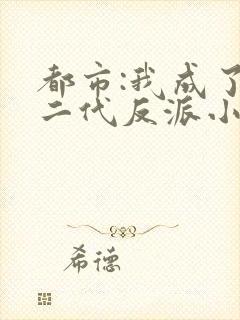 都市:我成了
二代反派小
希德